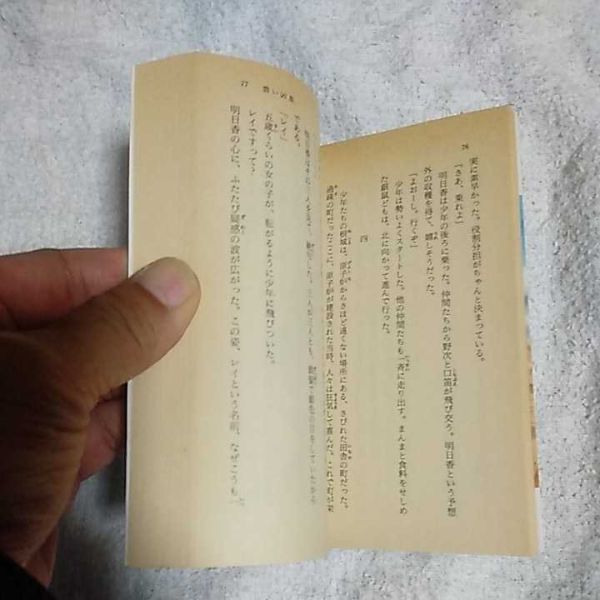 76
実に素早かった。役割分担がちゃんと決まっている。
「さあ、乗れよ」
明日香は少年の後ろに乗った。仲間たちから野次と口笛が飛び交う。明日香という予想
外の収穫を得て、嬉しそうだった。
「よおーし。行くぞ」
少年は勢いよくスタートした。他の仲間たちも一斉に走り出す。まんまと食料をせしめ
た銀鼠どもは、北に向かって進んで行った。
四
少年たちの根城は、原子がからさほど遠くない場所にある、さびれた田舎の町だった。
過疎の町だったここに、原子がが建設された当時、人々は狂気して喜んだ。これで町が栄
77
である。
「レイ」
五歳くらいの女の子が、転がるように少年に飛びついた。
レイですって？
明日香の心に、ふたたび疑惑の波が広がった。この姿、レイという名前、なぜこうも